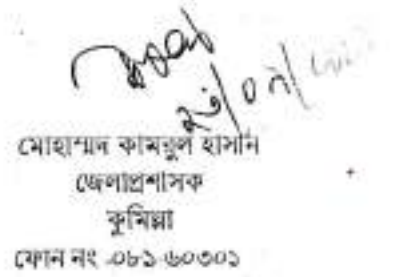 মোহাম্মদ কামরুল হাসান
জেলাপ্রশাসক
কুমিল্লা
ফোন নং -০৮১-৬০৩০১